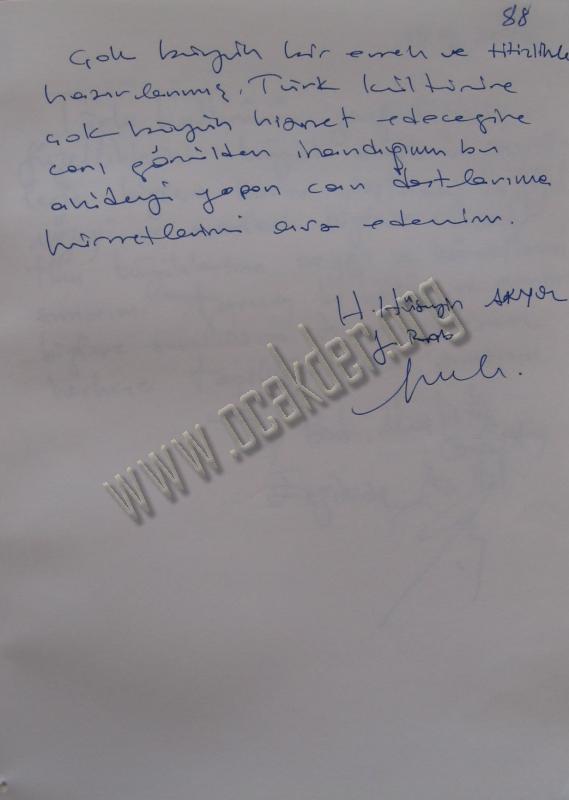 88
Çok büyük bir emek ve titizlikle
hazırlanmış, Türk kültürüne
çok büyük hizmet edeceğine
canı gönülden inandığım bu
abideyi yapan can dostlarıma
hürmetlerimi arz ederim.
H. Hüseyin AKYOL
www.ocakder.org